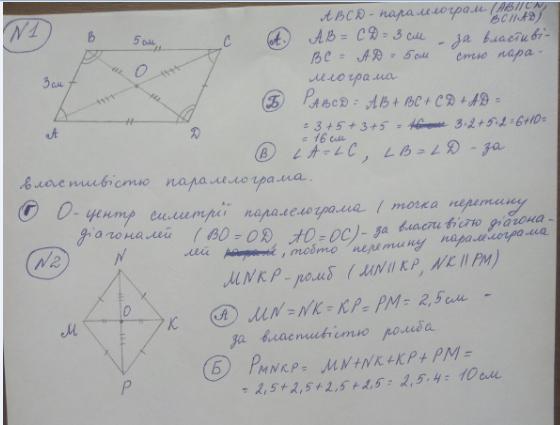 №1
ABCD - паралелограм (AB||CD, BC||AD)
B 5см C
3см O
A D
А. AB = CD = 3см - за властиві-
BC = AD = 5см стю пара-
лелограма
Б PABCD = AB + BC + CD + AD =
= 3+5+3+5 = 16см 3·2+5·2=6+10=
= 16см
В ∠A=∠C, ∠B=∠D - за
властивістю паралелограма.
Г O - центр симетрії паралелограма (точка перетину
діагоналей (BO=OD, AO=OC) - за властивістю діагона-
лей , тобто перетину паралелограма
№2
MNKP - ромб (MN||KP, NK||PM)
N
M O K
P
А MN = NK = KP = PM = 2,5см -
за властивістю ромба
Б PMNKP = MN+NK+KP+PM=
= 2,5+2,5+2,5+2,5= 2,5·4= 10см